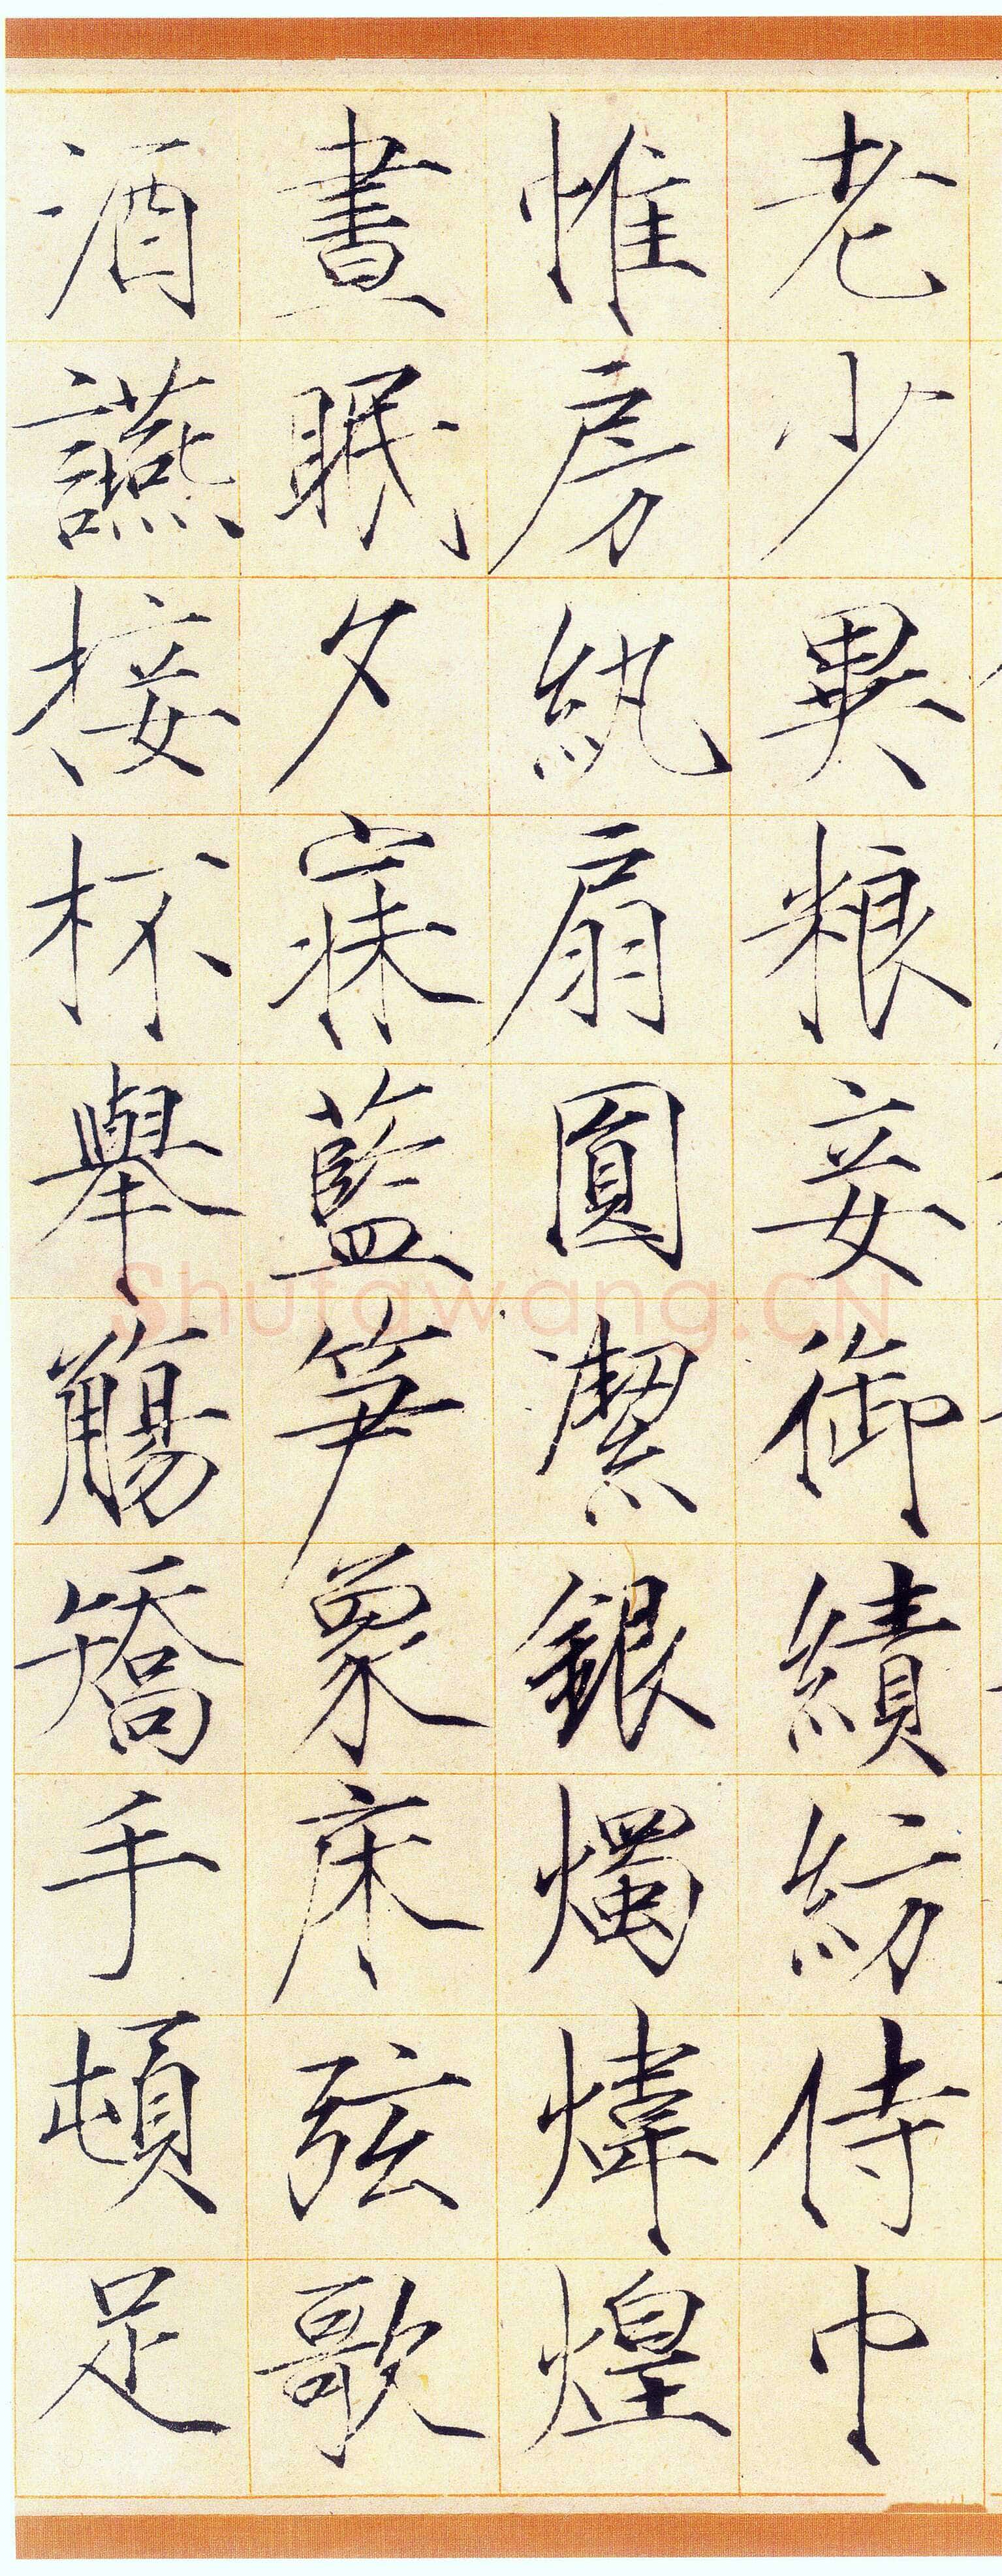 老少異粮妾御績紡侍巾
帷房紈扇圓潔銀燭煒煌
晝眠夕寐藍笋象床弦歌
酒讌接杯舉觴矯手頓足
Shufawang.CN